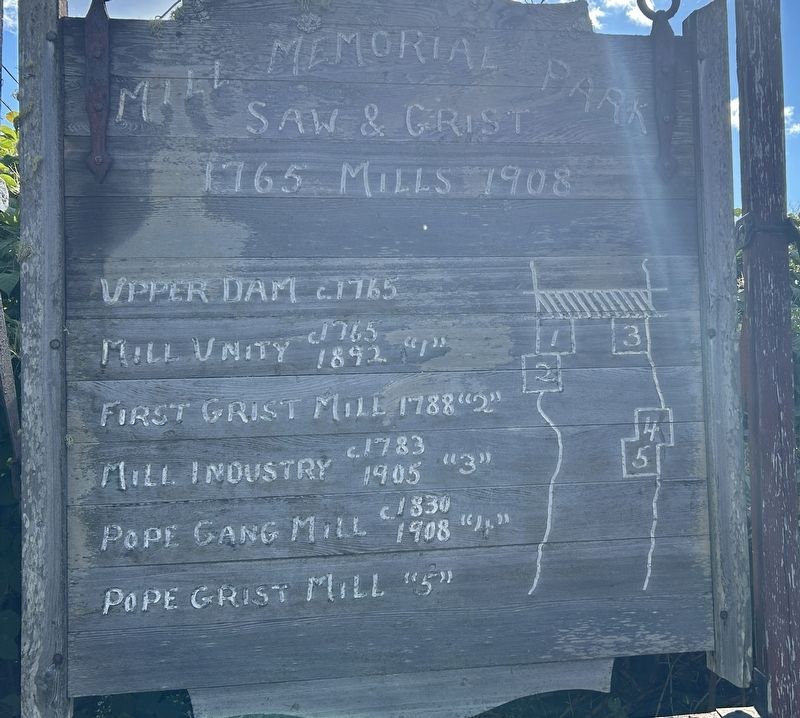 MILL MEMORIAL PARK
SAW & GRIST
1765 MILLS 1908
UPPER DAM c.1765
MILL UNITY c.1765 1892 "1"
FIRST GRIST MILL 1788 "2"
MILL INDUSTRY c.1783 1905 "3"
POPE GANG MILL c.1830 1908 "4"
POPE GRIST MILL "5"
1 3
2
4
5